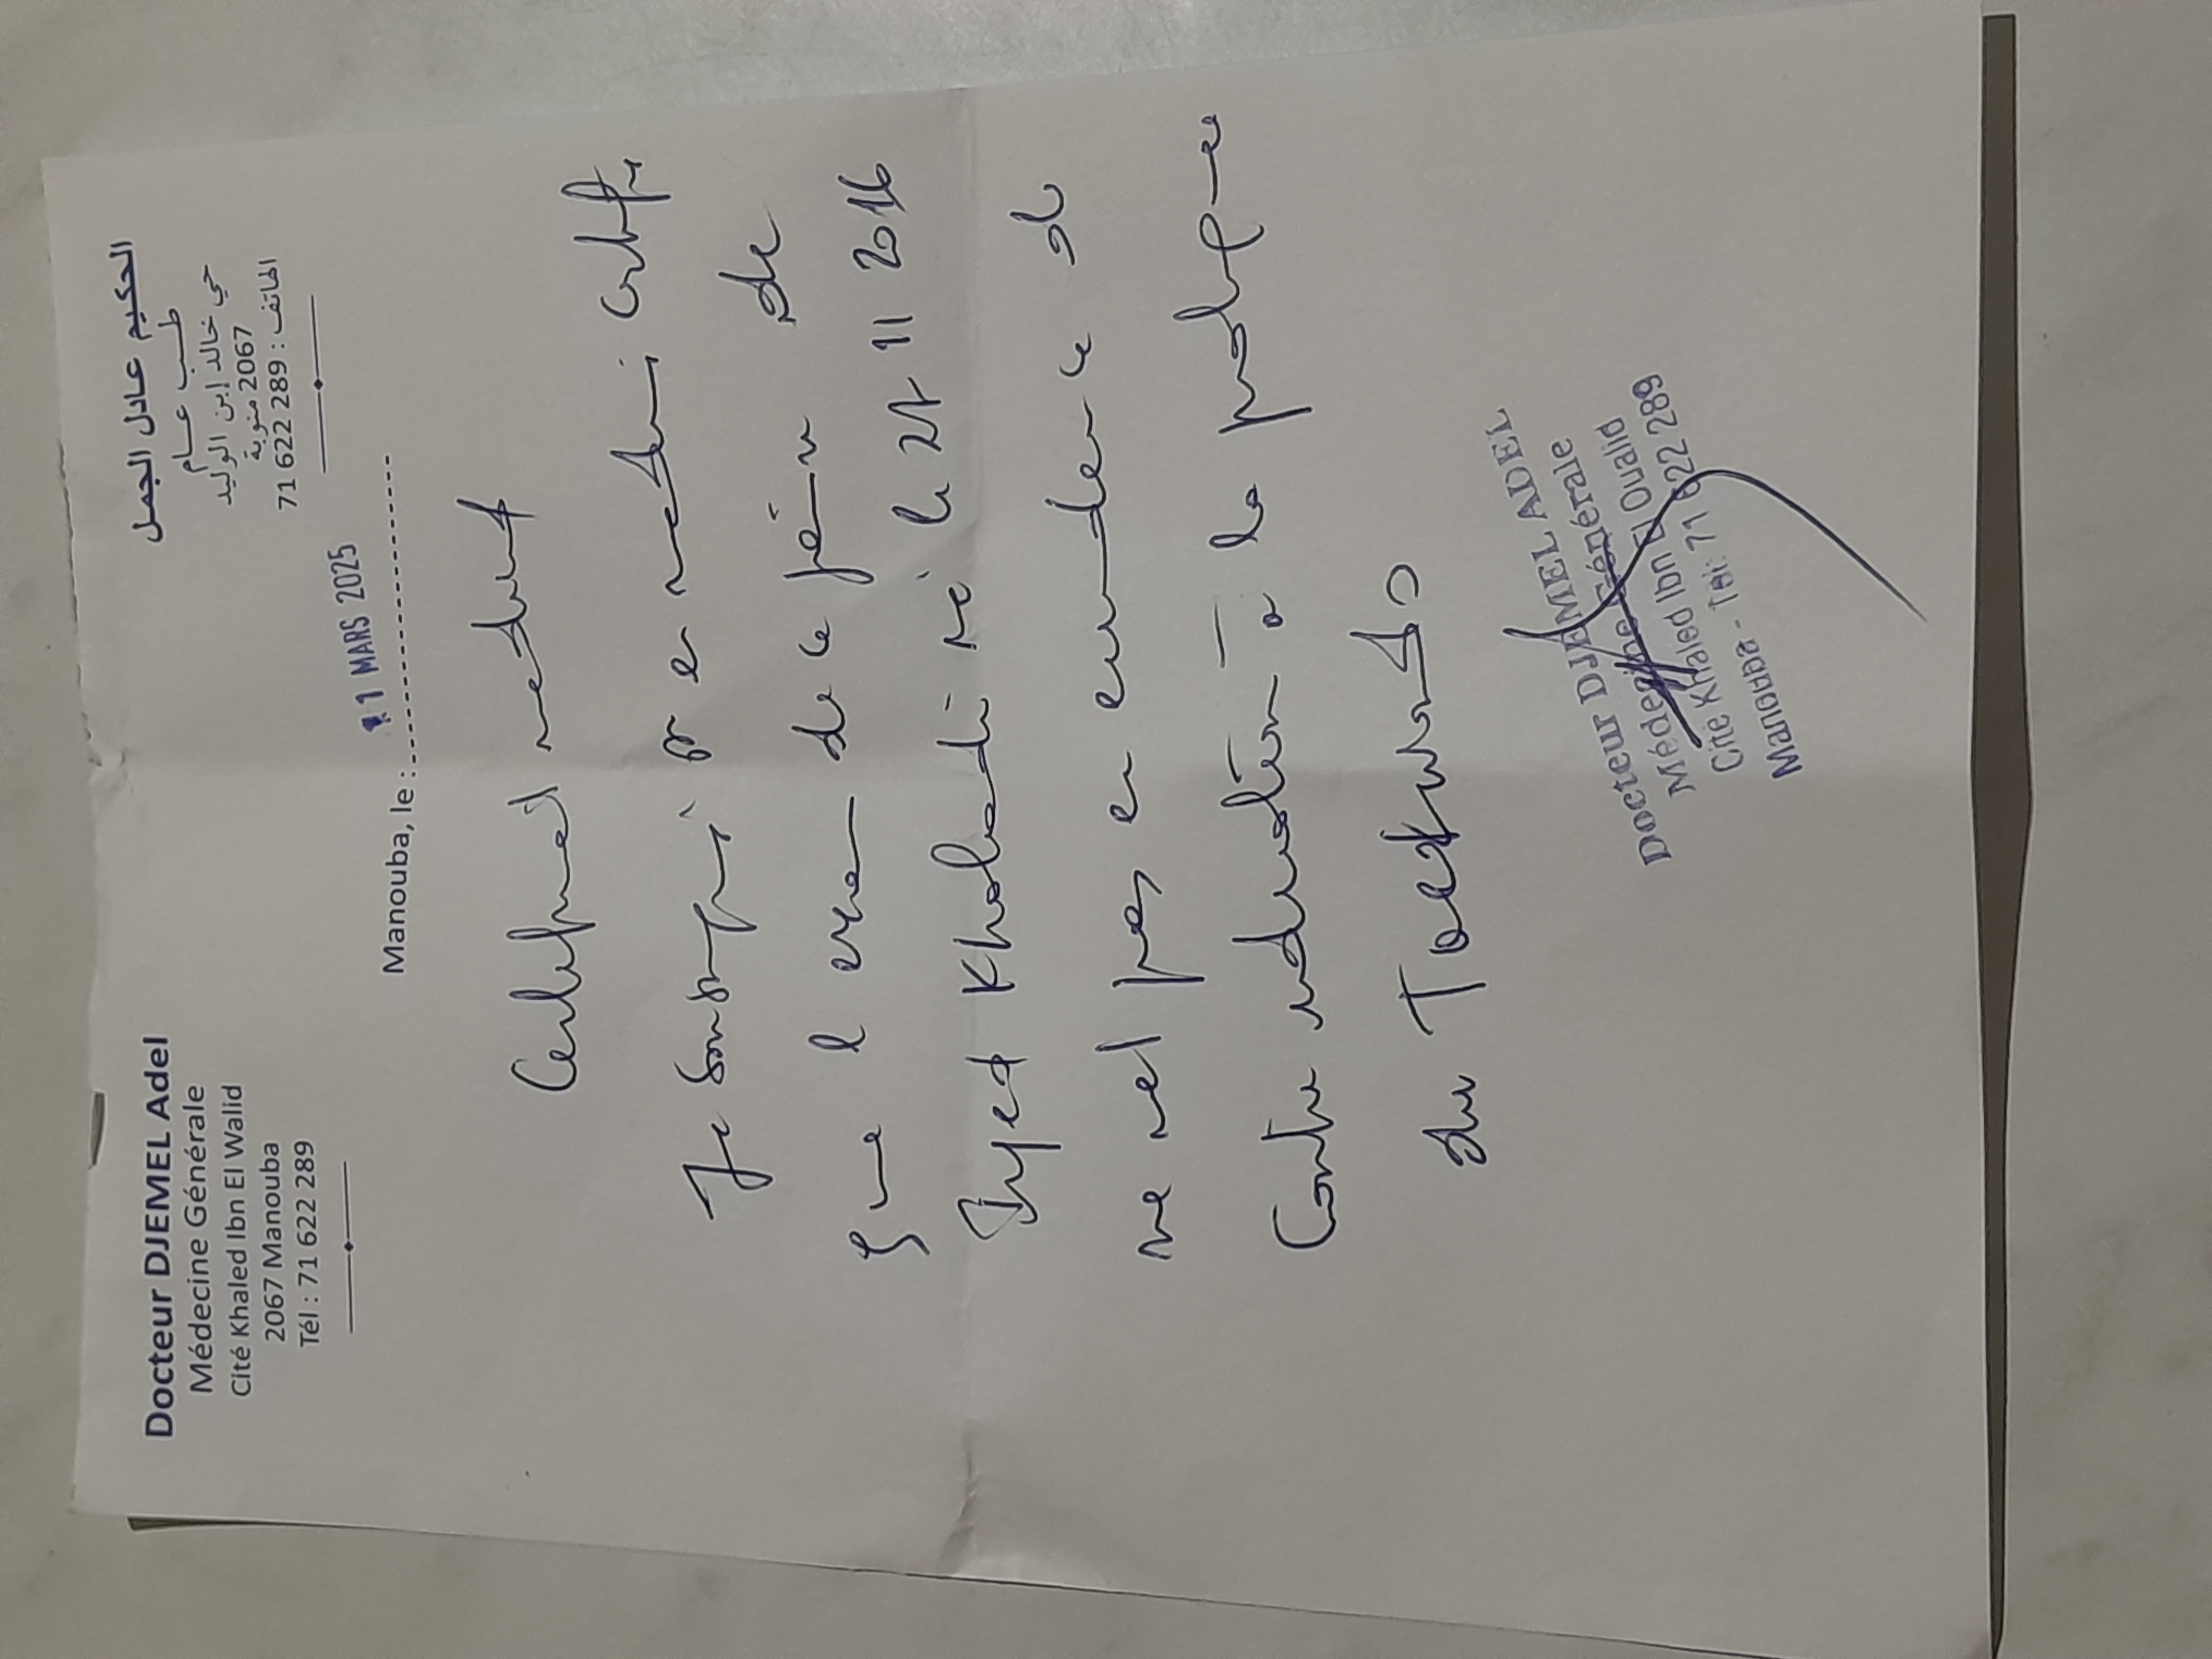 Docteur DJEMEL Adel
Médecine Générale
Cité Khaled Ibn El Walid
2067 Manouba
Tél : 71 622 289
الحكيم عادل الجمل
طب عام
حي خالد إبن الوليد
2067 منوبة
الهاتف : 289 622 71
Manouba, le : 1 MARS 2025
Certificat medical
Je soussigné medecin certifie
que l examen de ce jour de
Khaledi né le 11 2016
ne met pas en evidence de
Contre indication à la pratique
du Taekwondo
Docteur DJEMEL ADEL
Médecine Générale
Cité Khaled Ibn El Oualid
Manouba - Tél: 71 622 289